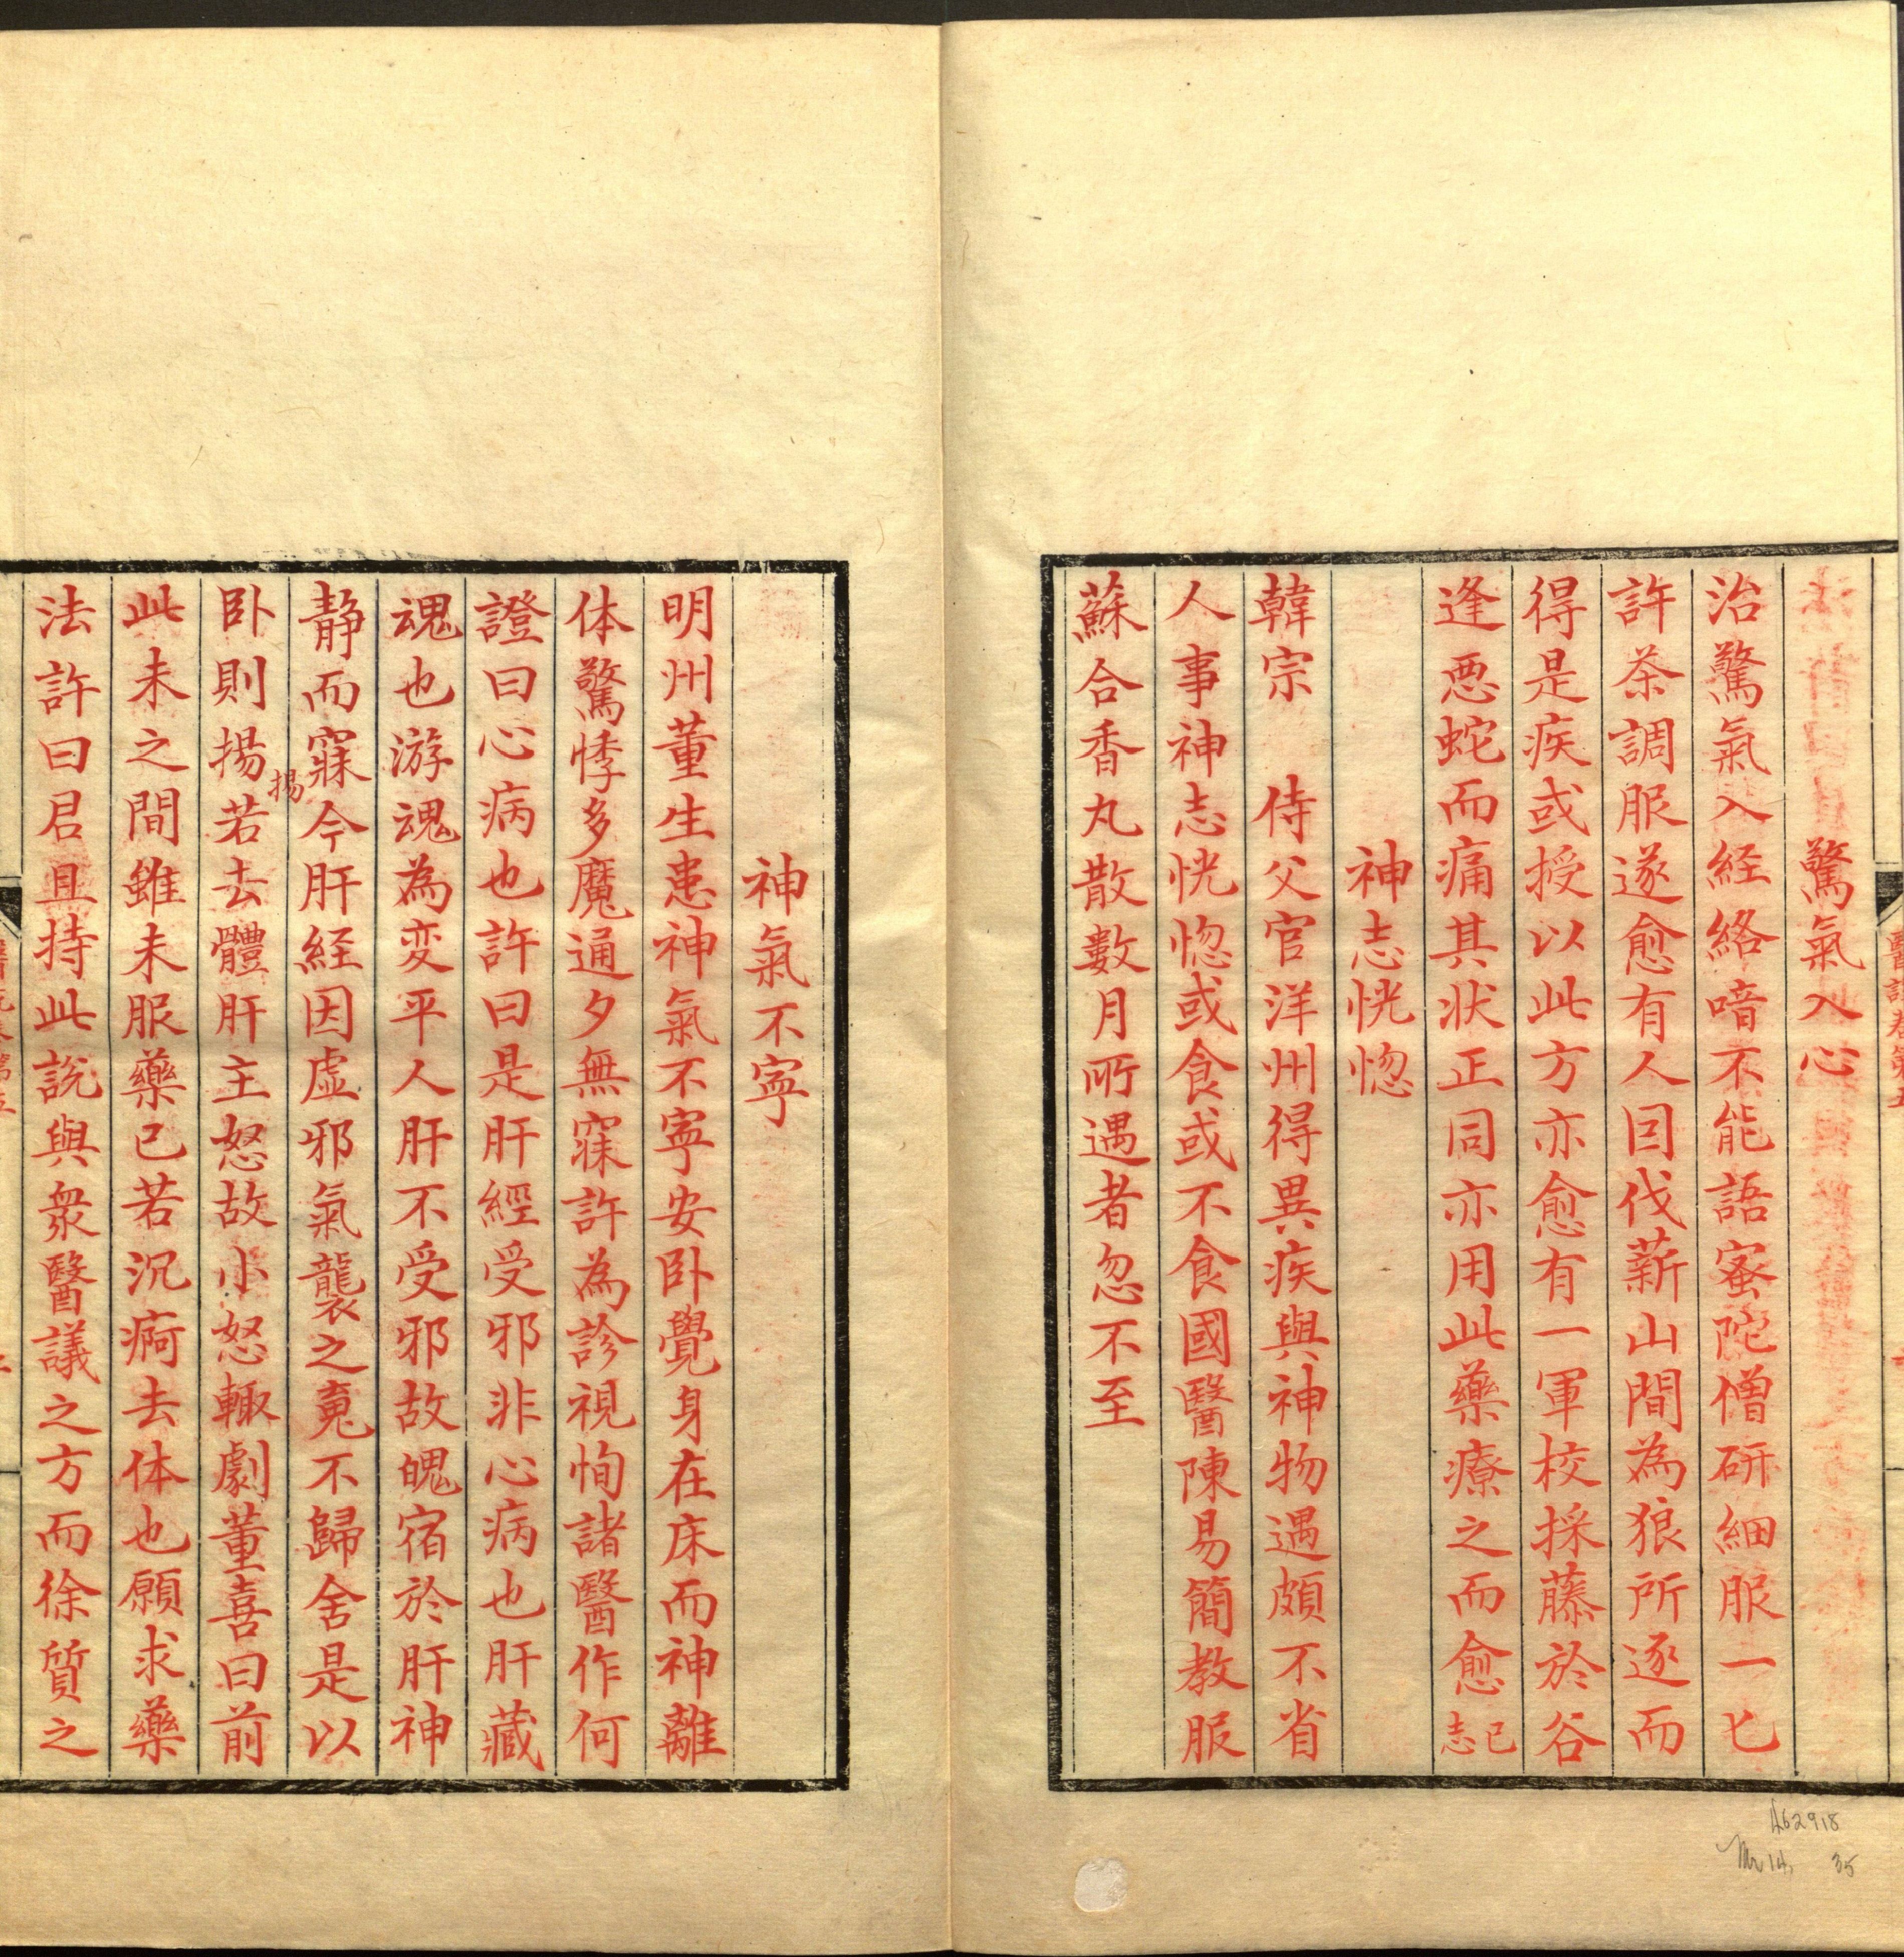 驚氣入心
治驚氣入経絡喑不能語蜜陀僧研細服一匕
許茶調服遂愈有人因伐薪山間為狼所逐而
得是疾或授以此方亦愈有一軍校採藤於谷
逢悪蛇而痛其狀正同亦用此藥療之而愈己志
神志恍惚
韓宗 侍父官洋州得異疾與神物遇頗不省
人事神志恍惚或食或不食國醫陳易簡教服
蘇合香丸散數月所遇者忽不至
神氣不寧
明州董生患神氣不寧安卧覺身在床而神離
体驚悸多魘通夕無寐許為診視恂諸醫作何
證曰心病也許曰是肝經受邪非心病也肝藏
魂也游魂為変平人肝不受邪故魄宿於肝神
静而寐今肝経因虚邪氣襲之䰟不歸舍是以
卧則揚若去體肝主怒故小怒輙劇董喜曰前
揚
此未之間雖未服藥已若沉痾去体也願求藥
法許曰君且持此說與衆醫議之方而徐質之
A62918
35